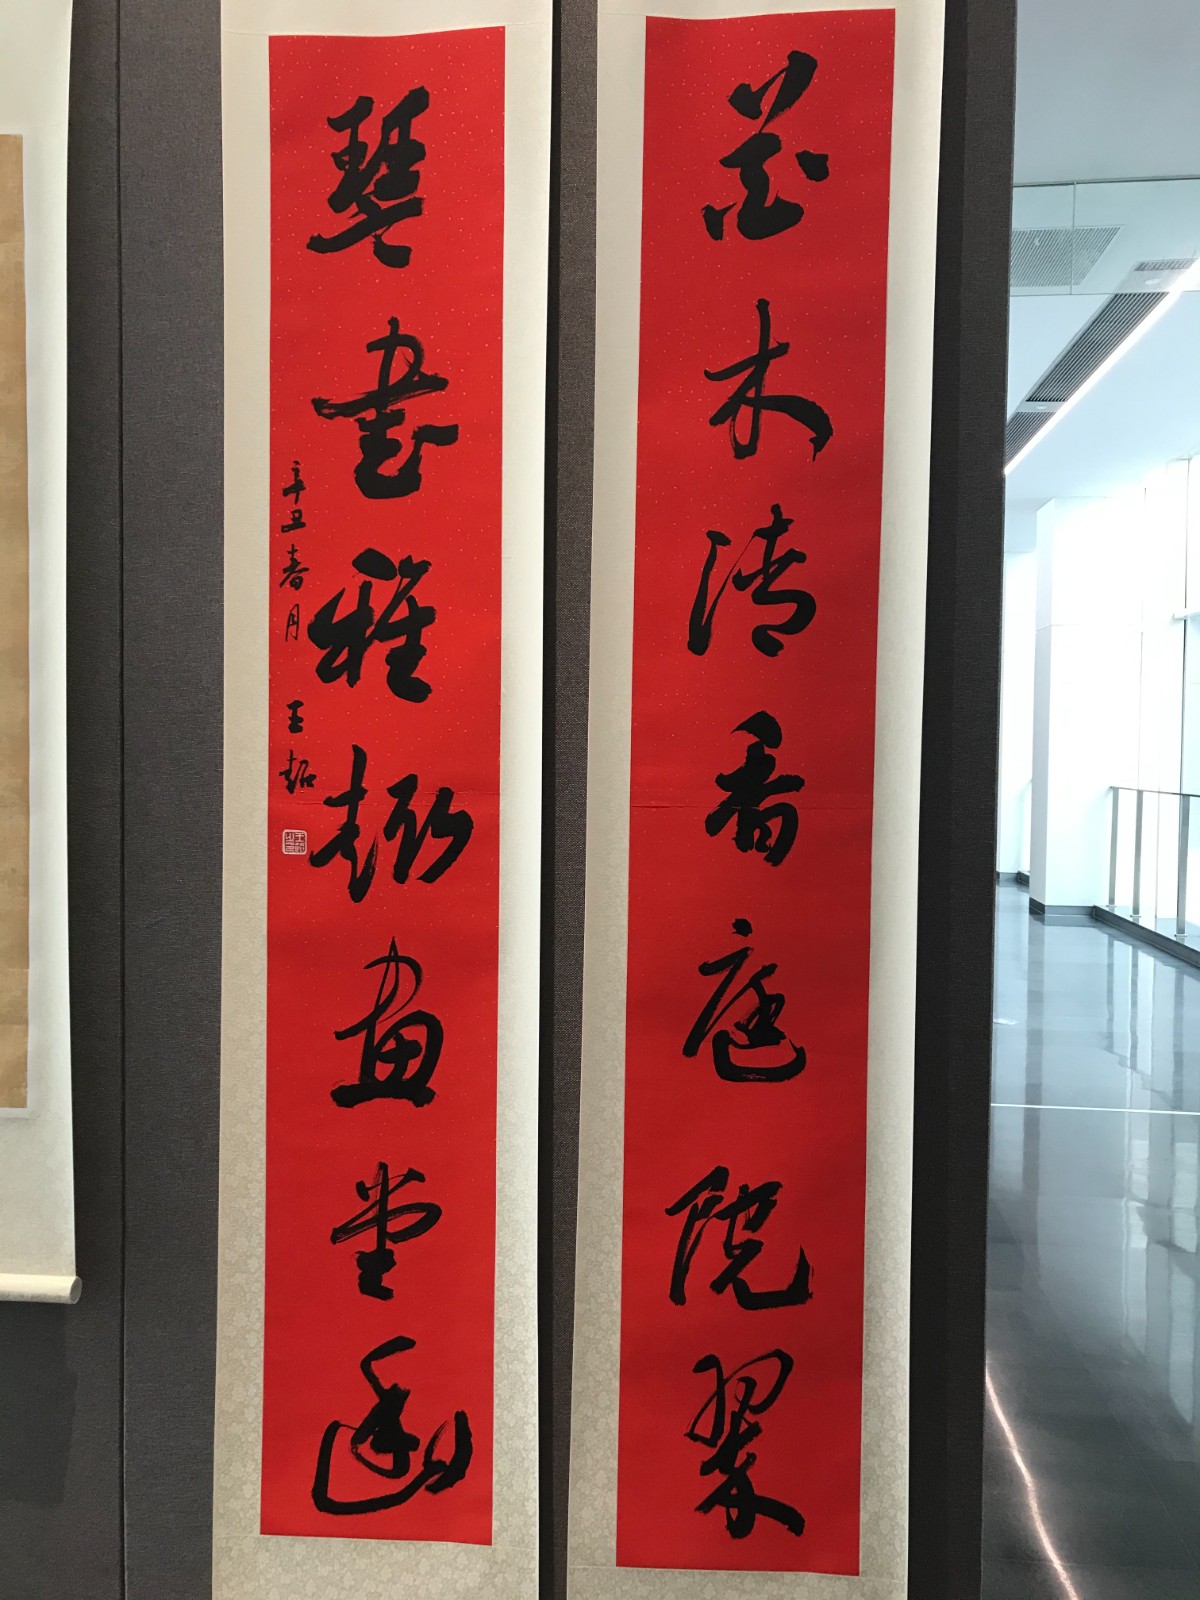 花木清香庭院翠
琴書雅趣畫堂幽
辛丑春月 王超